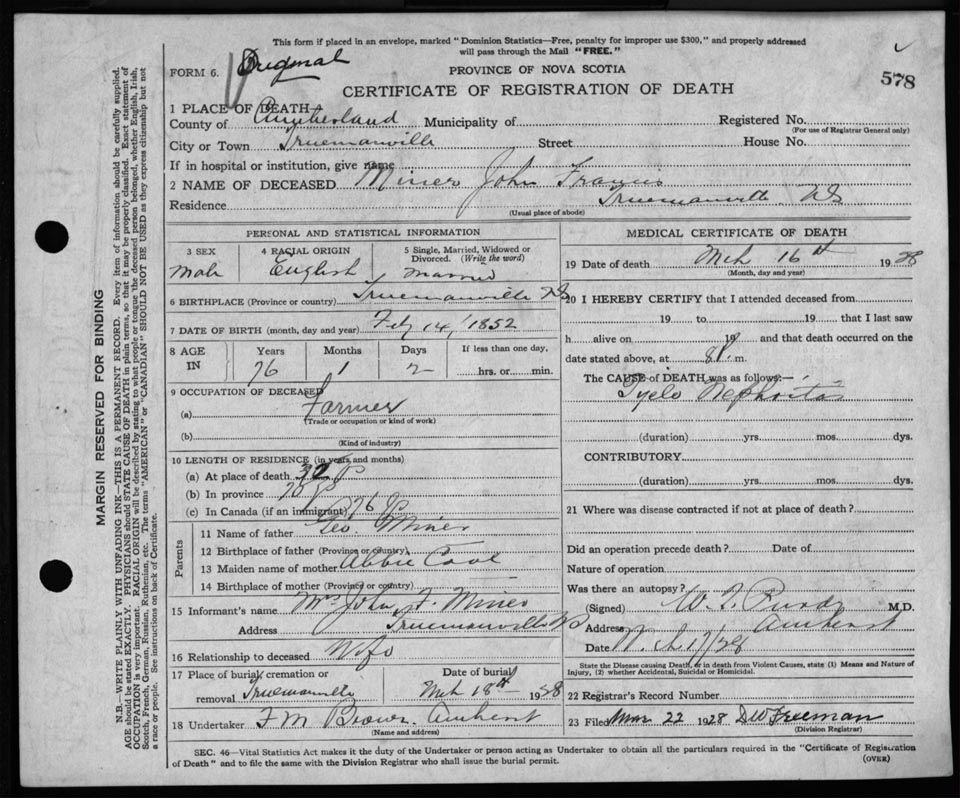 This form if placed in an envelope, marked "Dominion Statistics—Free, penalty for improper use $300," and properly addressed
will pass through the Mail "FREE."
FORM 6. Original
PROVINCE OF NOVA SCOTIA
578
CERTIFICATE OF REGISTRATION OF DEATH
1 PLACE OF DEATH—
County of Cumberland Municipality of Registered No.
(For use of Registrar General only)
City or Town Truemanville Street House No.
If in hospital or institution, give name
2 NAME OF DECEASED Miner John Francis
Residence Truemanville NS
(Usual place of abode)
PERSONAL AND STATISTICAL INFORMATION
3 SEX 4 RACIAL ORIGIN 5 Single, Married, Widowed or
Divorced. (Write the word)
Male English Married
6 BIRTHPLACE (Province or country) Truemanville NS
7 DATE OF BIRTH (month, day and year) Feb 14, 1852
8 AGE IN Years Months Days If less than one day,
76 1 2 hrs. or min.
9 OCCUPATION OF DECEASED
(a) Farmer
(Trade or occupation or kind of work)
(b)
(Kind of industry)
10 LENGTH OF RESIDENCE (in years and months)
(a) At place of death 32
(b) In province 76
(c) In Canada (if an immigrant) 76
Parents
11 Name of father Geo. Miner
12 Birthplace of father (Province or country)
13 Maiden name of mother Abbie
14 Birthplace of mother (Province or country)
15 Informant's name Mrs John F. Miner
Address Truemanville NS
16 Relationship to deceased Wife
17 Place of burial, cremation or Date of burial
removal Truemanville Mch 18th 1928
18 Undertaker F M Brown Amherst
(Name and address)
MEDICAL CERTIFICATE OF DEATH
19 Date of death Mch 16th 1928
(Month, day and year)
20 I HEREBY CERTIFY that I attended deceased from
19 to 19 that I last saw
h alive on 19 and that death occurred on the
date stated above, at 8 P. m.
The CAUSE of DEATH was as follows:—
Pyelo Nephritis
(duration) yrs. mos. dys.
CONTRIBUTORY
(duration) yrs. mos. dys.
21 Where was disease contracted if not at place of death?
Did an operation precede death? Date of
Nature of operation
Was there an autopsy?
(Signed) W. T. Purdy M.D.
Address Amherst
Date Mch 17/28
State the Disease causing Death, or in death from Violent Causes, state (1) Means and Nature of
Injury, (2) whether Accidental, Suicidal or Homicidal.
22 Registrar's Record Number
23 Filed Mar 22 1928 DW Freeman
(Division Registrar)
SEC. 46—Vital Statistics Act makes it the duty of the Undertaker or person acting as Undertaker to obtain all the particulars required in the "Certificate of Registration
of Death" and to file the same with the Division Registrar who shall issue the burial permit.
(OVER)
MARGIN RESERVED FOR BINDING
N.B.—WRITE PLAINLY WITH UNFADING INK—THIS IS A PERMANENT RECORD. Every item of information should be carefully supplied.
AGE should be stated EXACTLY. PHYSICIANS should STATE CAUSE OF DEATH in plain terms, so that it may be properly classified. Exact statement of
OCCUPATION is very important. RACIAL ORIGIN will be described by stating to what people or tongue the deceased person belonged, whether English, Irish,
Scotch, French, German, Russian, Ruthenian, etc. The terms "AMERICAN" or "CANADIAN" SHOULD NOT BE USED as they express citizenship but not
a race or people. See instructions on back of Certificate.